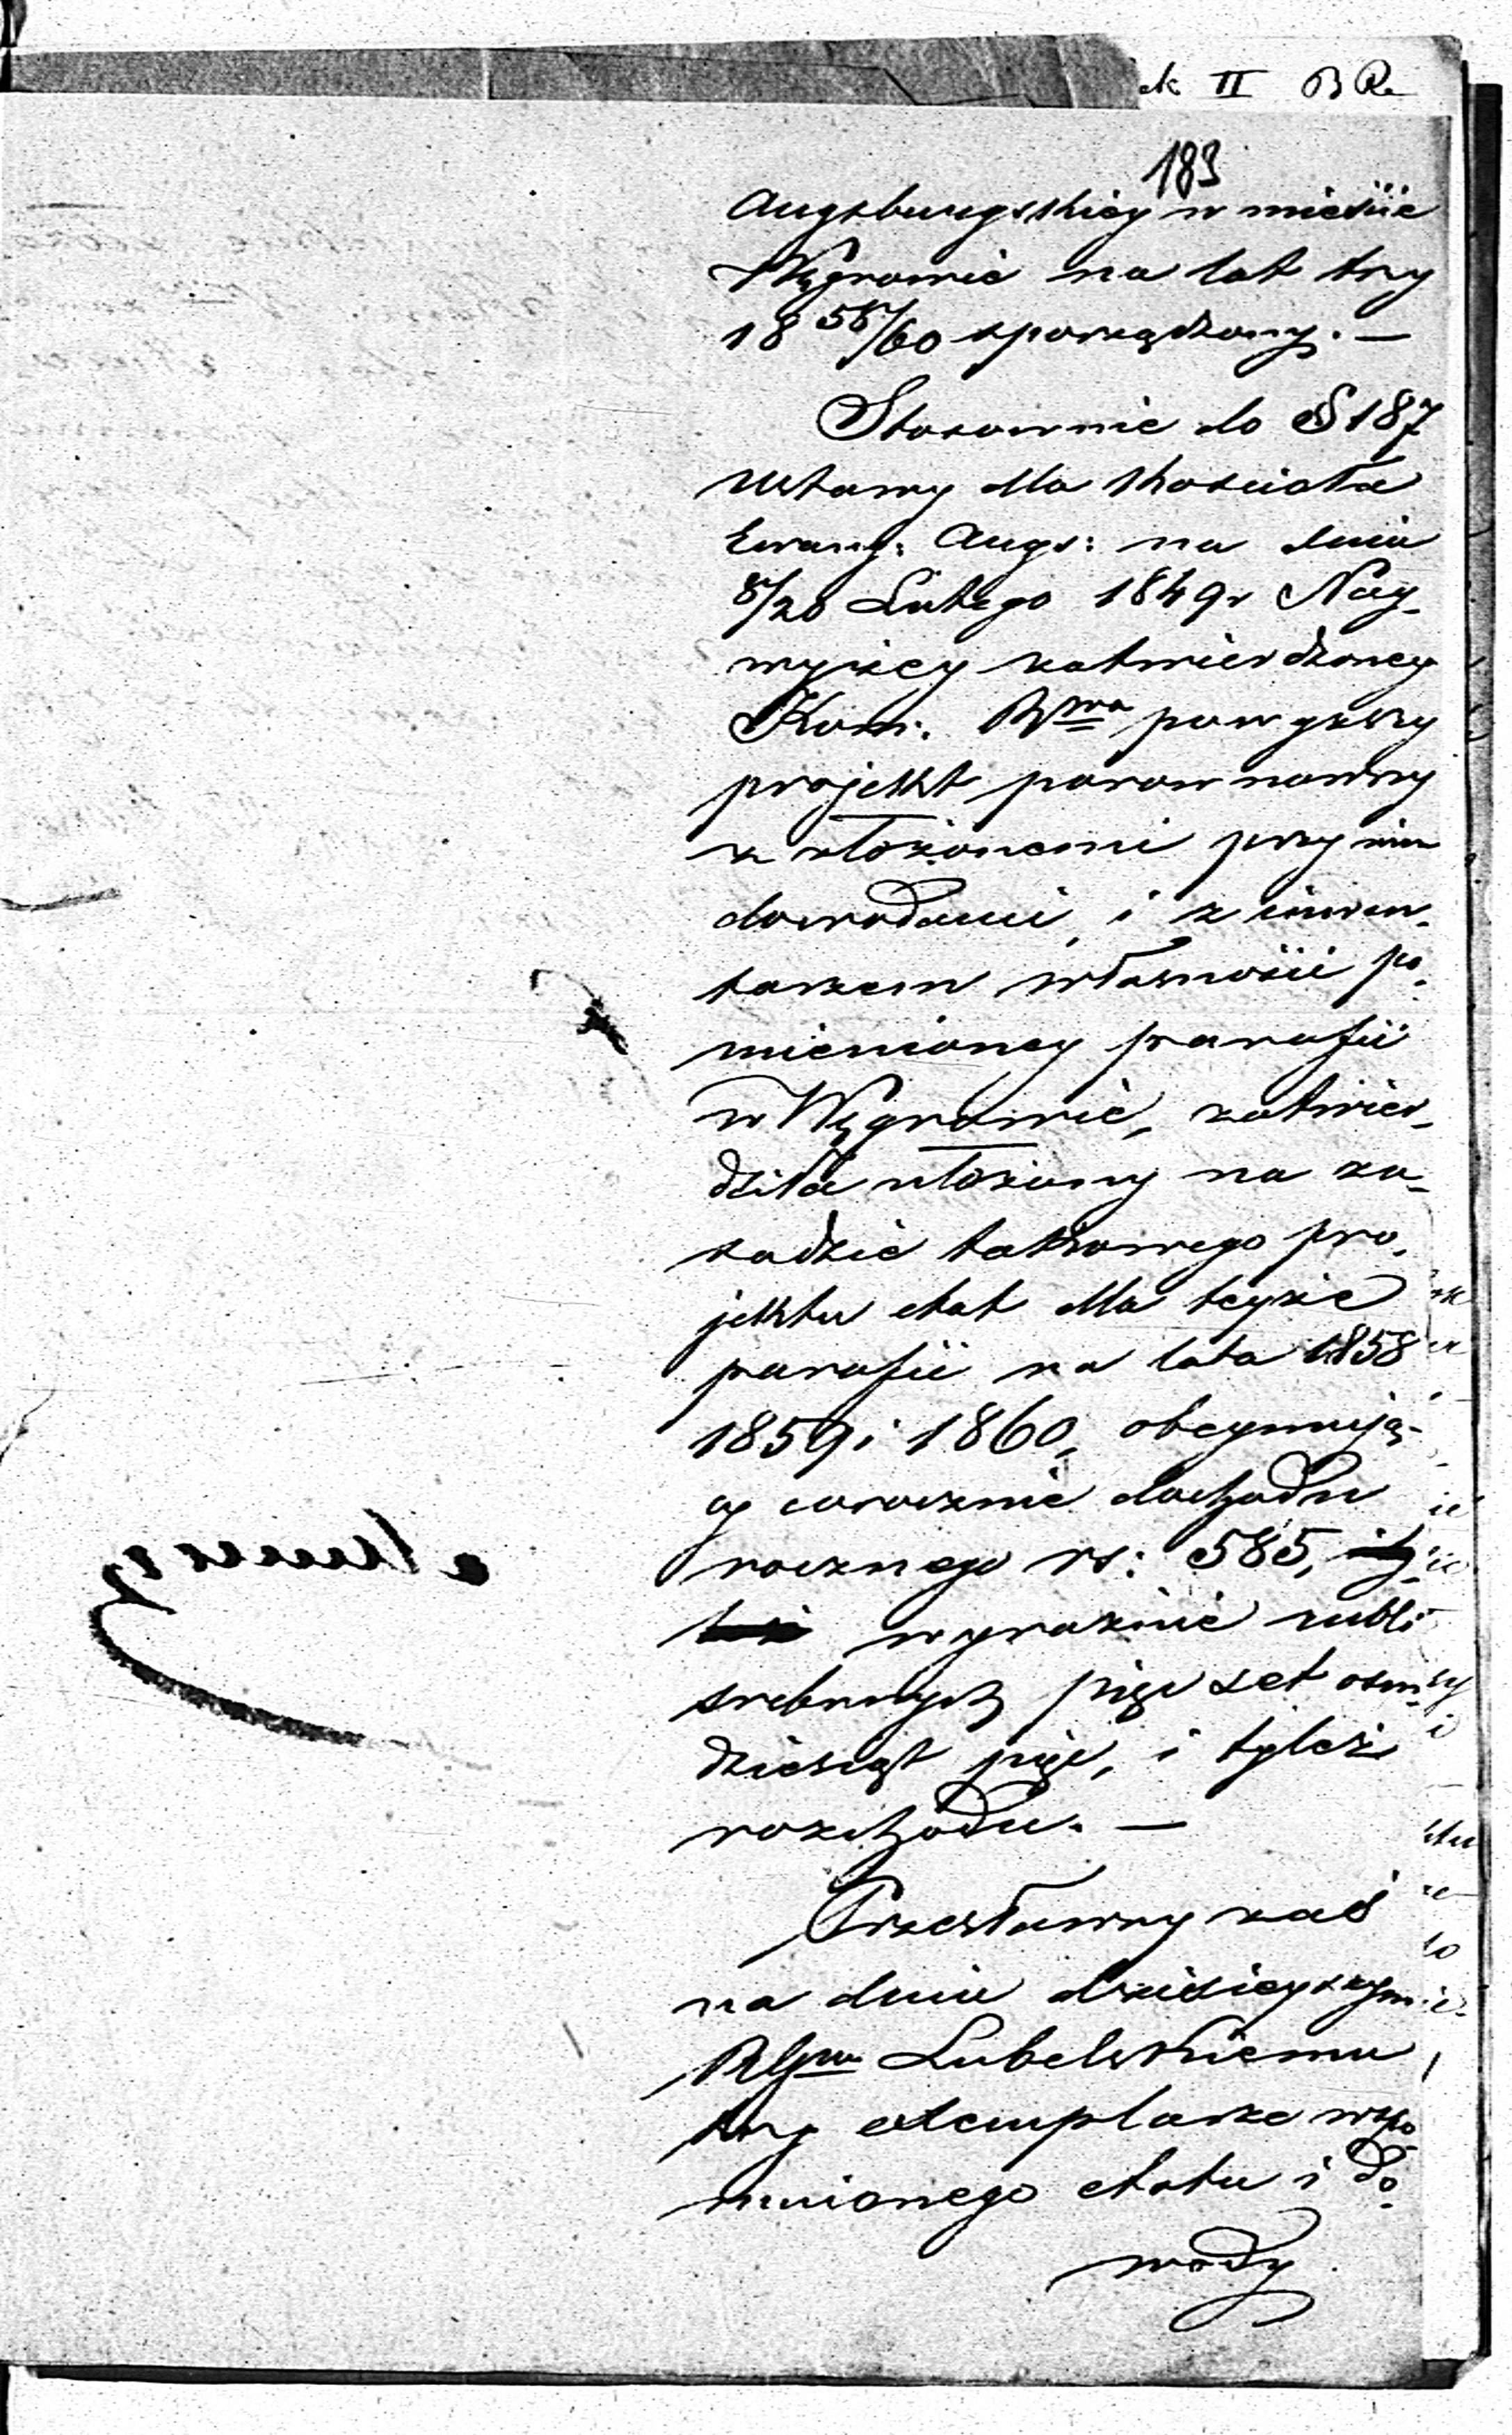 ek II B R
183
Augsburgskiey w mieście
Węgrowie na lat trzy
18 58/60 sporządzony. —
Stosownie do § 187
ustawy dla kościoła
Ewang: Augs: na dniu
8/20 Lutego 1849 r Nay-
wyżey zatwierdzoney
Kom. Rząwa powyższy
projekt porownawszy
z ułożonemi przy nim
dowodami, i z inwen-
tarzem własności po-
mienioney parafii
w Węgrowie, zatwier-
dziła ułożony na za-
sadzie takowego pro-
jektu etat dla teyże
parafii na lata 1858
1859 i 1860, obeymują-
cy corocznie dochodu
rocznego rs: 585,
wyraźnie rubli
srebrnych pięć set ośm-
dziesiąt pięć, i tyleż
rozchodu. —
Przesławszy zaś
na dniu dzisieyszym
RGu Lubelskiemu
trzy exemplarze wspo
mnionego etatu i do-
wody